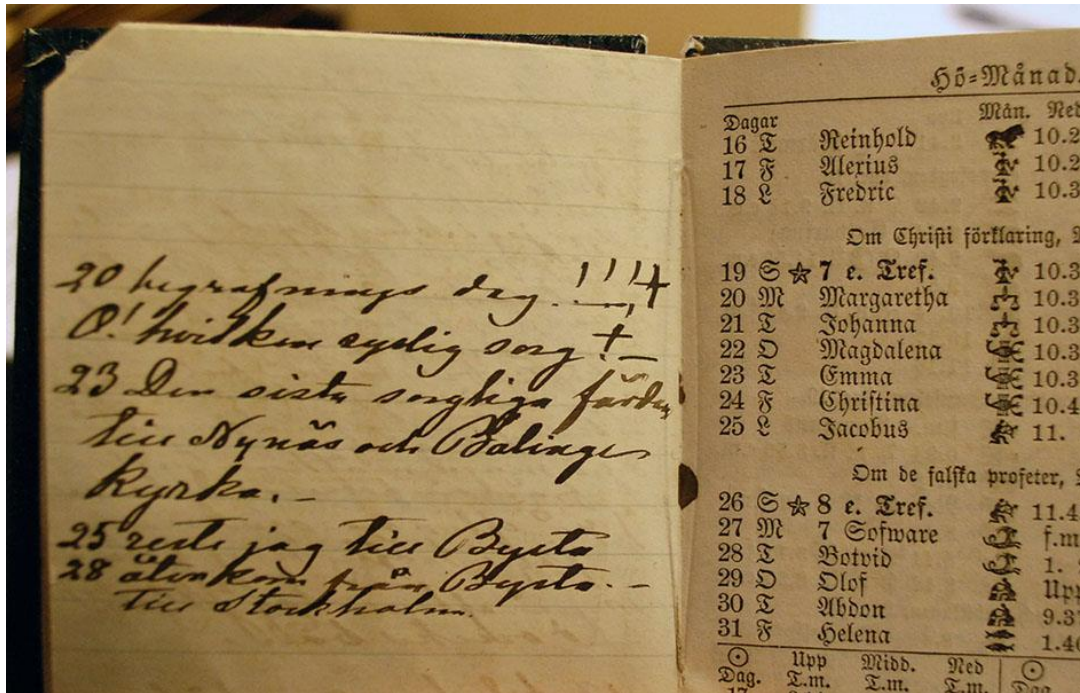 20 begrafnings dag. !!!+
O! hvilken syslig sorg +
23 Den sista sorgliga färden
till Nynäs och Bälinge
Kyrka. –
25 reste jag till Bysta
28 återkom från Bysta. –
till Stockholm.
Hö-Månad.
Dagar Mån. Ned
16 T Reinhold 10.2
17 F Alexius 10.2
18 L Fredric 10.3
Om Christi förklaring,
19 S 7 e. Tref. 10.3
20 M Margaretha 10.3
21 T Johanna 10.3
22 O Magdalena 10.3
23 T Emma 10.3
24 F Christina 10.4
25 L Jacobus 11.
Om de falska profeter,
26 S 8 e. Tref. 11.4
27 M 7 Sofware f.m
28 T Botvid 1.
29 O Olof Upp
30 T Abdon 9.3
31 F Helena 1.40
Upp Midd. Ned
Dag. T.m. T.m. T.m. Dag
17